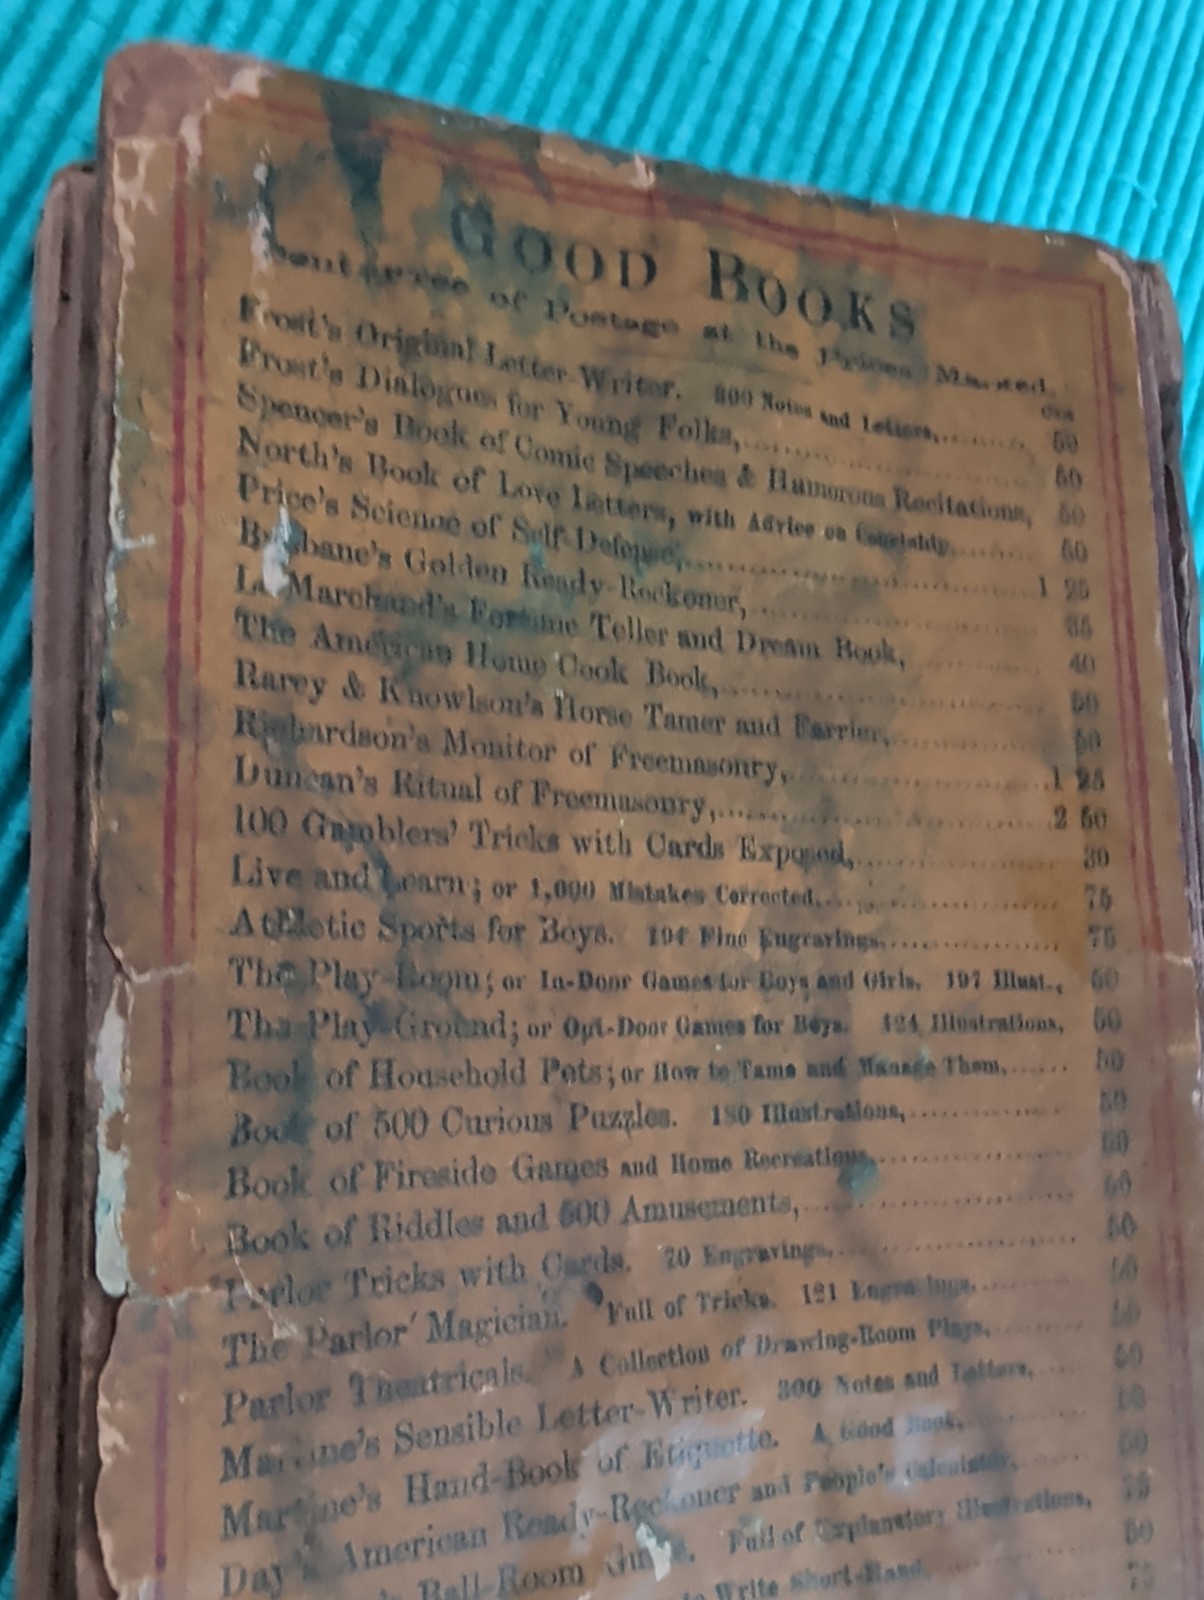 GOOD BOOKS
Sent Free of Postage at the Prices Marked.
cts
Frost's Original Letter-Writer. 300 Notes and Letters,.......... 50
Frost's Dialogues for Young Folks,.......... 50
Spencer's Book of Comic Speeches & Humorous Recitations, 50
North's Book of Love Letters, with Advice on Courtship,.......... 50
Price's Science of Self-Defense,.......... 1 25
Brisbane's Golden Ready-Reckoner,.......... 35
Le Marchand's Fortune Teller and Dream Book,.......... 40
The American Home Cook Book,.......... 50
Rarey & Knowlson's Horse Tamer and Farrier,.......... 50
Richardson's Monitor of Freemasonry,.......... 1 25
Duncan's Ritual of Freemasonry,.......... 2 50
100 Gamblers' Tricks with Cards Exposed,.......... 30
Live and Learn; or 1,000 Mistakes Corrected,.......... 75
Athletic Sports for Boys. 194 Fine Engravings,.......... 75
The Play-Room; or In-Door Games for Boys and Girls. 197 Illust., 50
The Play-Ground; or Out-Door Games for Boys. 124 Illustrations, 50
Book of Household Pets; or How to Tame and Manage Them,...... 50
Book of 500 Curious Puzzles. 180 Illustrations,.......... 50
Book of Fireside Games and Home Recreations,.......... 50
Book of Riddles and 500 Amusements,.......... 50
Parlor Tricks with Cards. 70 Engravings,.......... 50
The Parlor Magician. Full of Tricks. 121 Engravings,.......... 50
Parlor Theatricals. A Collection of Drawing-Room Plays,.......... 50
Martine's Sensible Letter-Writer. 300 Notes and Letters,...... 50
Martine's Hand-Book of Etiquette. A Good Book,.......... 50
Day's American Ready-Reckoner and People's Calculator,...... 50
Ball-Room Guide. Full of Explanatory Illustrations, 75
to Write Short-Hand, 50
75